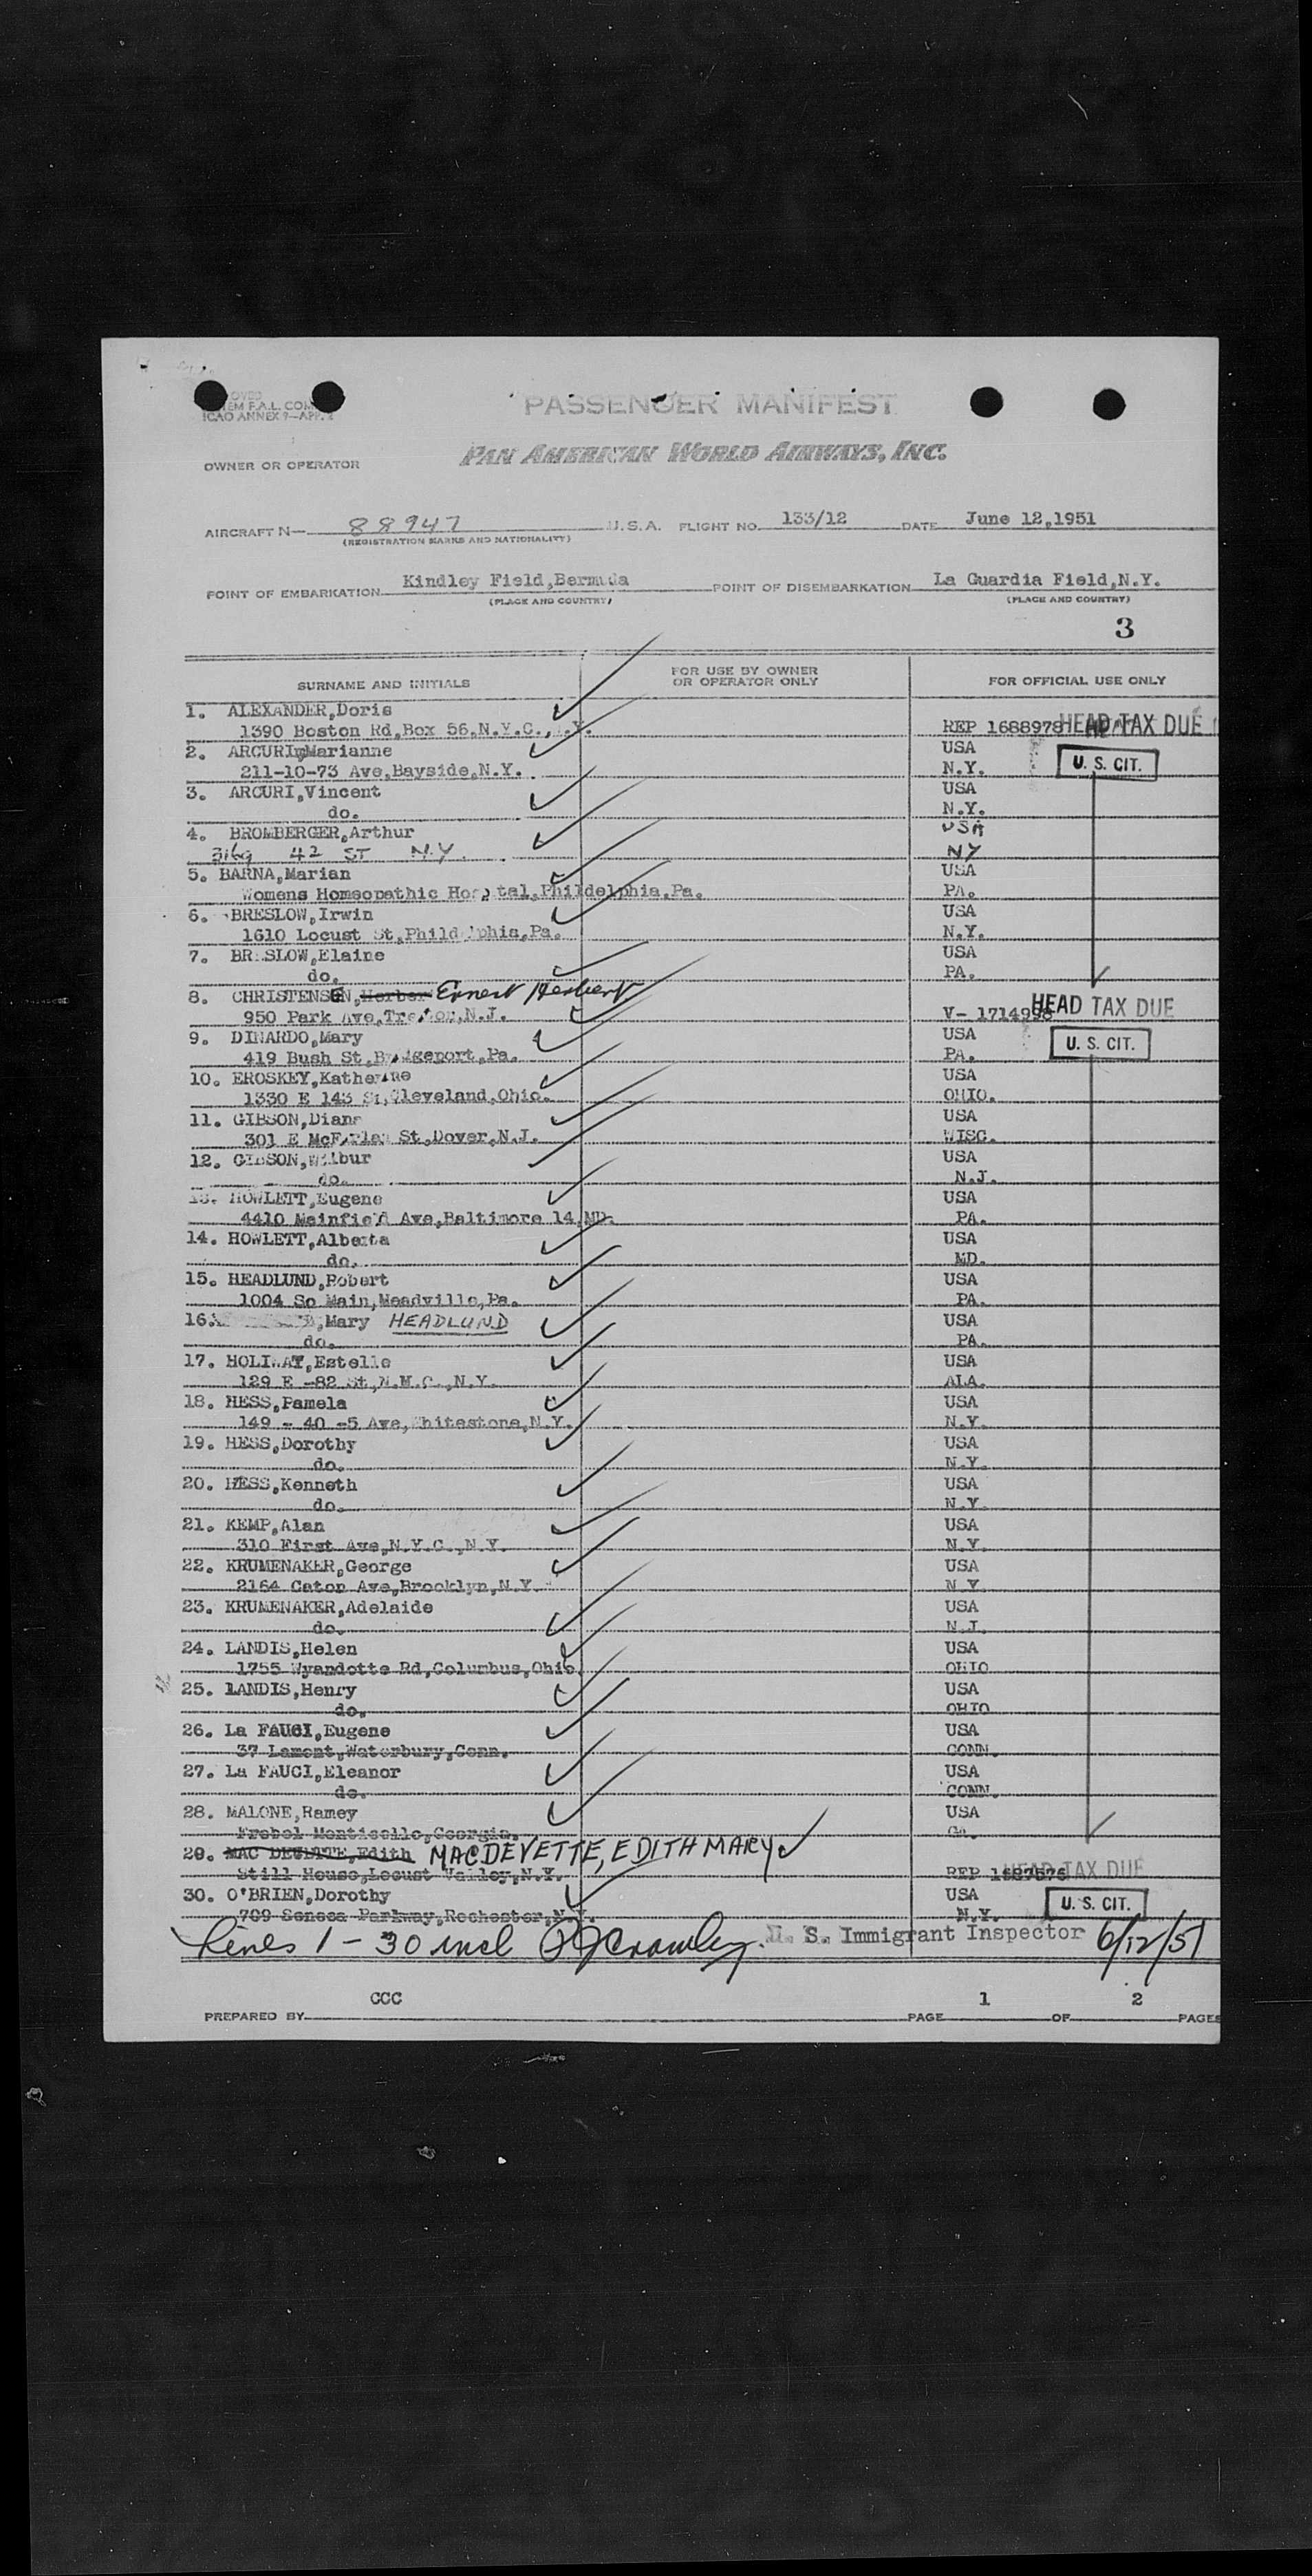 PASSENGER MANIFEST
ICAO ANNEX 9—APP.
PAN AMERICAN WORLD AIRWAYS, INC.
OWNER OR OPERATOR
AIRCRAFT N— 88947 U.S.A. FLIGHT NO. 133/12 DATE June 12,1951
(REGISTRATION MARKS AND NATIONALITY)
POINT OF EMBARKATION Kindley Field,Bermuda POINT OF DISEMBARKATION La Guardia Field,N.Y.
(PLACE AND COUNTRY) (PLACE AND COUNTRY)
3
SURNAME AND INITIALS FOR USE BY OWNER OR OPERATOR ONLY FOR OFFICIAL USE ONLY
1. ALEXANDER,Doris
1390 Boston Rd,Box 56,N.Y.C., REP 1688978 HEAD TAX DUE
2. ARCURI,Marianne USA
211-10-73 Ave,Bayside,N.Y. N.Y. U. S. CIT.
3. ARCURI,Vincent USA
do. N.Y.
4. BROMBERGER,Arthur USA
42 ST N.Y. NY
5. BARNA,Marian USA
Womens Homeopathic Hos tal,Phildelphia,Pa. PA.
6. BRESLOW,Irwin USA
1610 Locust St,Phildelphia,Pa. N.Y.
7. BRESLOW,Elaine USA
do. PA.
8. CHRISTENSEN,Herbert Ernest Herbert
950 Park Ave,Trenton,N.J. V- 1714998 HEAD TAX DUE
9. DINARDO,Mary USA
419 Bush St,Bridgeport,Pa. PA. U. S. CIT.
10. EROSKEY,Katherine USA
1330 E 143 St,Cleveland,Ohio. OHIO.
11. GIBSON,Diane USA
301 E McFarlan St,Dover,N.J. WISC.
12. GIBSON,Wilbur USA
do. N.J.
13. HOWLETT,Eugene USA
4410 Mainfield Ave,Baltimore 14,MD. PA.
14. HOWLETT,Alberta USA
do. MD.
15. HEADLUND,Robert USA
1004 So Main,Meadville,Pa. PA.
16. ,Mary HEADLUND USA
do. PA.
17. HOLIWAY,Estelle USA
129 E -82 St,N.M.C.,N.Y. ALA.
18. HESS,Pamela USA
149 - 40 -5 Ave,Whitestone,N.Y. N.Y.
19. HESS,Dorothy USA
do. N.Y.
20. HESS,Kenneth USA
do. N.Y.
21. KEMP,Alan USA
310 First Ave,N.Y.C.,N.Y. N.Y.
22. KRUMENAKER,George USA
2164 Caton Ave,Brooklyn,N.Y. N.Y.
23. KRUMENAKER,Adelaide USA
do. N.J.
24. LANDIS,Helen USA
1755 Wyandotte Rd,Columbus,Ohio. OHIO
25. LANDIS,Henry USA
do. OHIO
26. La FAUCI,Eugene USA
37 Lamont,Waterbury,Conn. CONN.
27. La FAUCI,Eleanor USA
do. CONN.
28. MALONE,Ramey USA
Frobel Monticello,Georgia. GA.
29. MAC DEVETTE,Edith MACDEVETTE, EDITH MARY
Still House,Locust Valley,N.Y. REP 1687576 HEAD TAX DUE
30. O'BRIEN,Dorothy USA
709 Seneca Parkway,Rochester,N.Y. N.Y. U. S. CIT.
Lines 1 - 30 incl Crowley U. S. Immigrant Inspector 6/12/51
PREPARED BY CCC PAGE 1 OF 2 PAGES